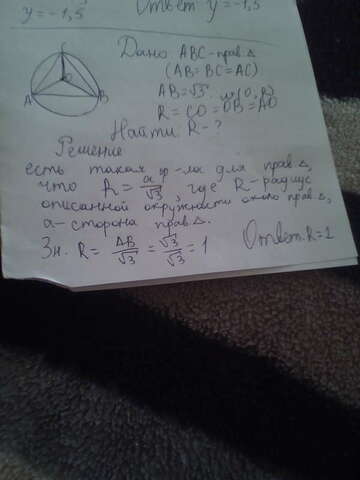 y = -1,5
Ответ y = -1,5
C
O
A
B
Дано ABC - прав. Δ
(AB = BC = AC)
AB = √3. w (O, R)
R = CO = OB = AO
Найти R - ?
Решение
есть такая ф-ла для прав Δ,
что R = a/√3, где R - радиус
описанной окружности около прав Δ,
a - сторона прав Δ.
Зн. R = AB/√3 = √3/√3 = 1
Ответ. R = 1